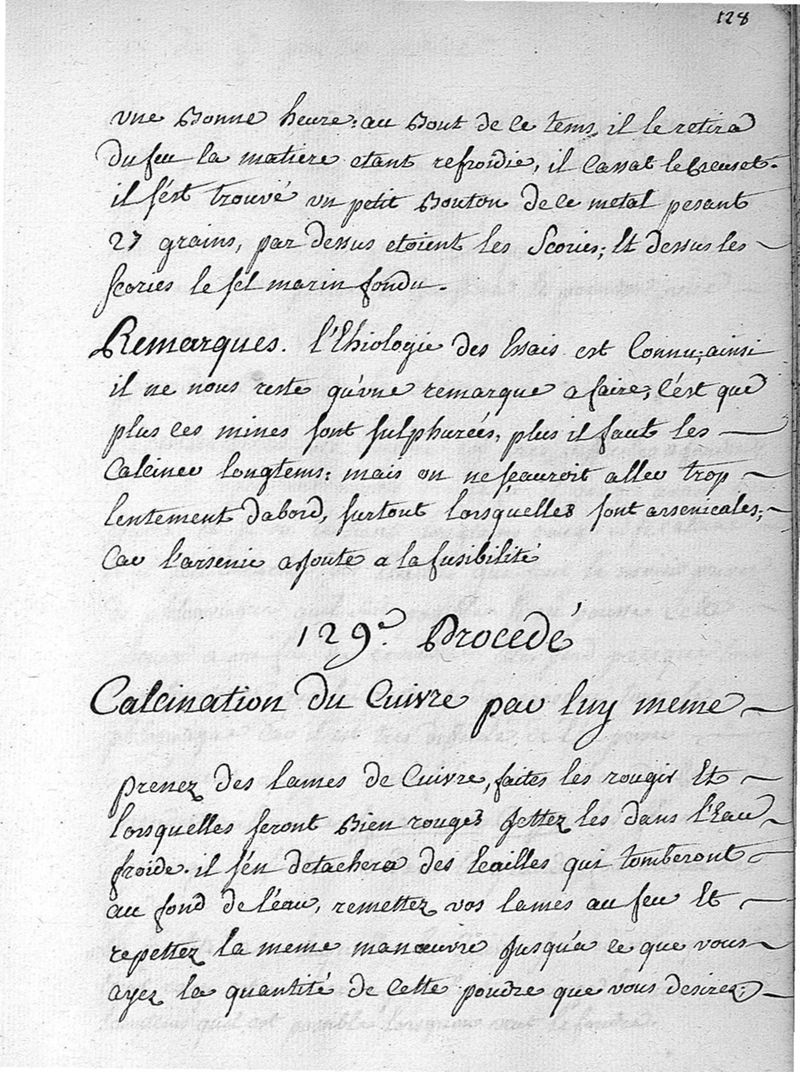 128
une Bonne heure. au Bout de ce tems, il le retira
du feu la matiere etant refroidie, il Cassat le Creuset.
il s'est trouvé un petit Bouton de ce metal pesant
27 grains, par dessus etoient les Scories; Et dessus les
scories le sel marin fondu.
Remarques. l'Ethiologie des Essais est Connu; ainsi
il ne nous reste qu'une remarque a faire, C'est que
plus ces mines sont sulphureés, plus il faut les
Calciner longtems: mais on ne sçauroit aller trop
lentement dabord, surtout lorsquelles sont arsenicales;
Car l'arsenic ajoute a la fusibilité
129e. Procedé
Calcination du Cuivre par luy meme
prenez des lames de Cuivre, faites les rougir Et
lorsquelles seront Bien rouges jettez les dans l'Eau
froide. il s'en detachera des Ecailles qui tomberont
au fond de l'éau, remettez vos lames au feu Et
repettez la meme manœuvre jusqu'a ce que vous
ayez la quantité de Cette poudre que vous desirez;